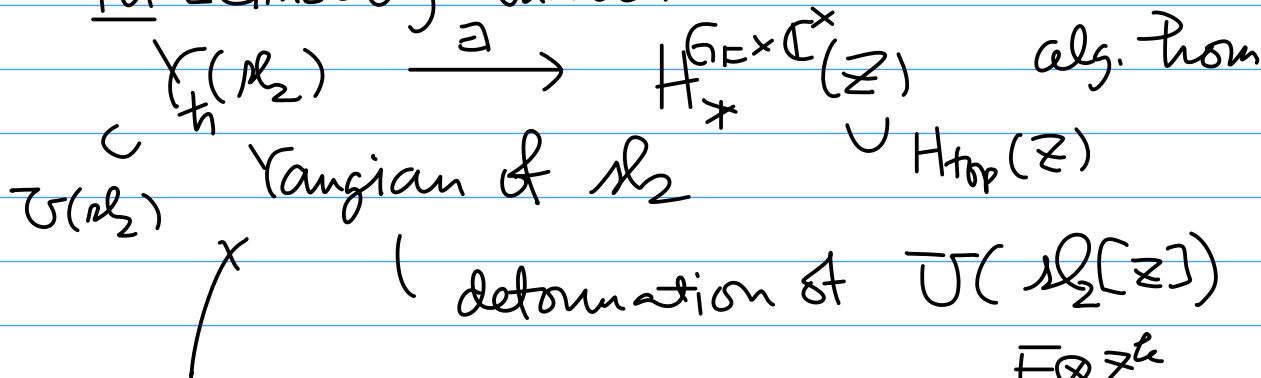 Y_ħ(sl₂) ∃⟶ H_*^{G_F×ℂ^×}(Z) alg. hom
∪ H_top(Z)
U(sl₂) Yangian of sl₂
( deformation of U(sl₂[z])
E⊗z^k